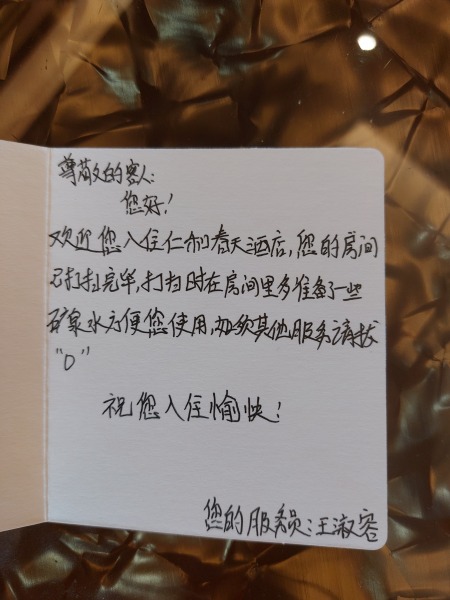 尊敬的客人:
您好!
欢迎您入住仁和春天酒店,您的房间
已打扫完毕,打扫时在房间里多准备了一些
矿泉水方便您使用,如须其他服务请拔
"0"
祝您入住愉快!
您的服务员:王淑容